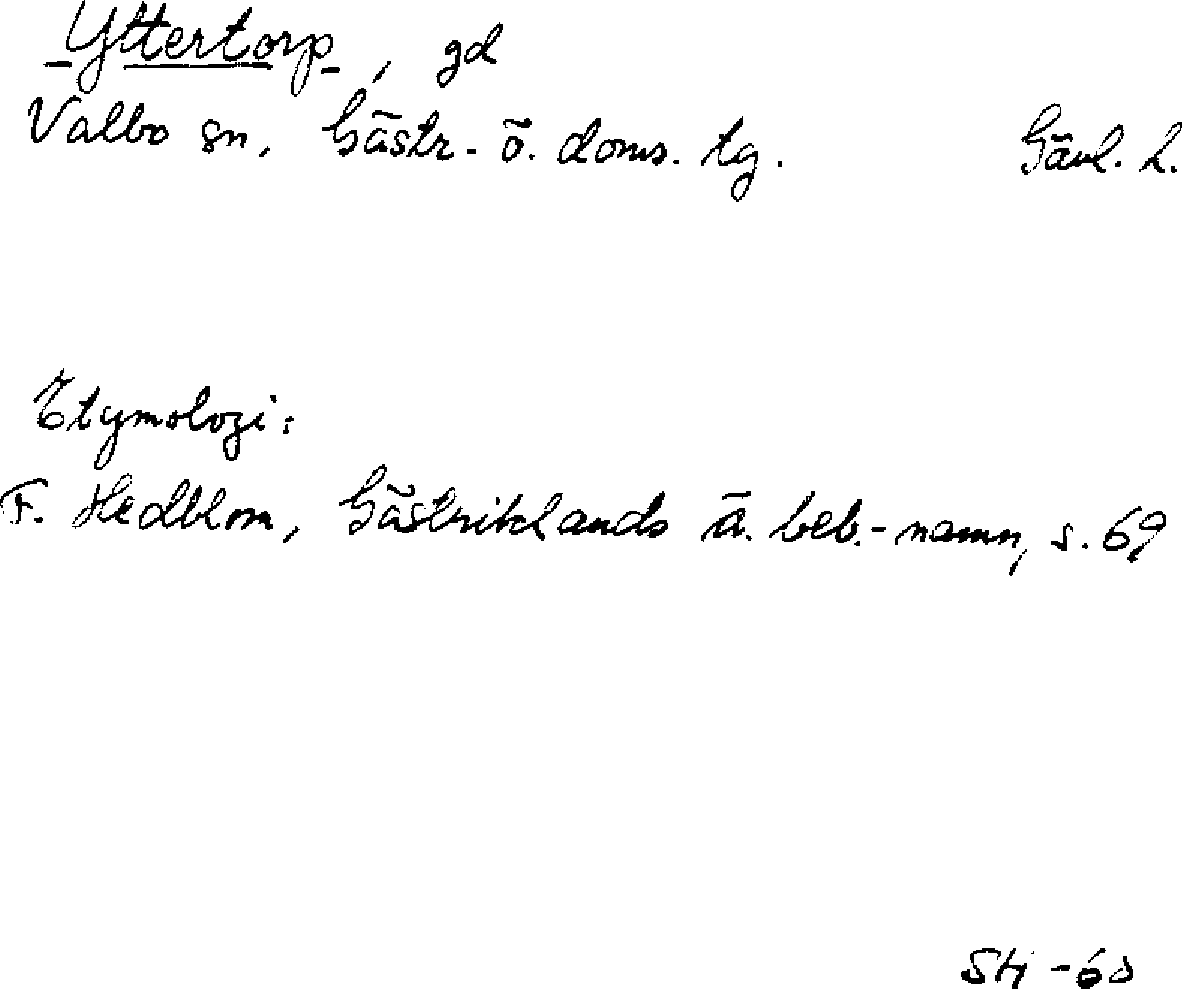 Yttertorp, gd
Valbo sn, Gästr. ö. doms. tg. Gävl. L.
Etymologi:
F. Hedblom, Gästriklands ä. beb.-namn, s. 69